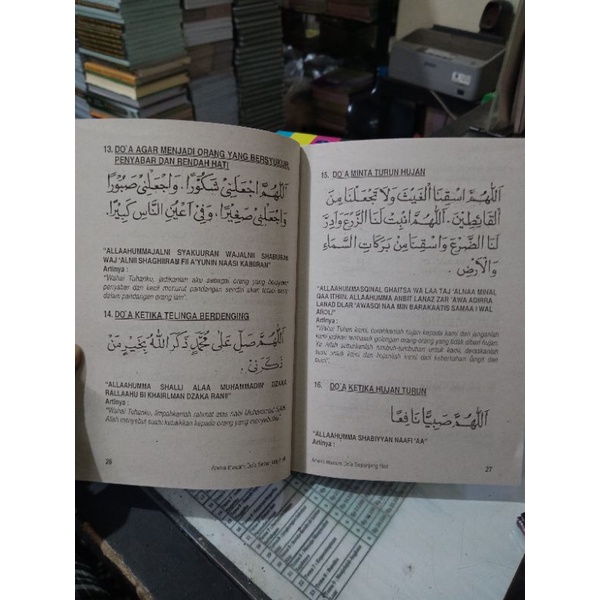 13. DO'A AGAR MENJADI ORANG YANG BERSYUKUR,
PENYABAR DAN RENDAH HATI
اَللّٰهُمَّ اجْعَلْنِيْ شَكُوْرًا. وَاجْعَلْنِيْ صَبُوْرًا
وَاجْعَلْنِيْ صَغِيْرًا. وَفِيْ اَعْيُنِ النَّاسِ كَبِيْرًا.
"ALLAAHUMMAJALNI SYAKUURAN WAJALNII SHABURAN
WAJ 'ALNII SHAGHIIRAN FII A'YUNIN NAASI KABIIRAN"
Artinya :
"Wahai Tuhanku, jadikanlah aku sebagai orang yang bersyukur,
penyabar dan kecil menurut pandangan sendiri akan tetapi besar
dalam pandangan orang lain".
14. DO'A KETIKA TELINGA BERDENGING
اَللّٰهُمَّ صَلِّ عَلٰى مُحَمَّدٍ ذَكَرَ اللّٰهُ بِخَيْرٍ مَنْ
ذَكَرَنِيْ.
"ALLAAHUMMA SHALLI ALAA MUHAMMADIM DZAKA
RALLAAHU BI KHAIRLMAN DZAKA RANII"
Artinya :
"Wahai Tuhanku, limpahkanlah rahmat atas nabi Muhammad
Allah menyebut suatu kebaikan kepada orang yang menyebutku
26
15. DO'A MINTA TURUN HUJAN
اَللّٰهُمَّ اسْقِنَا الْغَيْثَ وَلَا تَجْعَلْنَا مِنَ
الْقَانِطِيْنَ. اَللّٰهُمَّ انْبِتْ لَنَا الزَّرْعَ وَاَدِرَّ
لَنَا الضَّرْعَ وَاسْقِنَا مِنْ بَرَكَاتِ السَّمَاءِ
وَالْاَرْضِ.
"ALLAAHUMMASQINAL GHAITSA WA LAA TAJ 'ALNAA MINAL
QAA ITHIIN. ALLAAHUMMA ANBIT LANAZ ZAR 'AWA ADIRRA
LANAD DLAR 'AWASQI NAA MIN BARAKAATIS SAMAA I WAL
ARDLI"
Artinya :
"Wahai Tuhan kami, curahkanlah hujan kepada kami dan janganlah
kami jadikan termasuk golongan orang-orang yang tidak diberi hujan.
Ya Allah suburkanlah tumbuh-tumbuhan untuk kami, deraskanlah
susu untuk kami dan siramilah kami dari keberkahan langit dan
bumi".
16. DO'A KETIKA HUJAN TURUN
اَللّٰهُمَّ صَيِّبًا نَافِعًا
"ALLAAHUMMA SHABIYYAN NAAFI 'AA"
Artinya :
Do'a Sepanjang
27